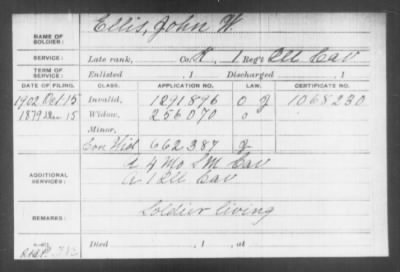 NAME OF SOLDIER: Ellis, John W.
SERVICE: Late rank, Co. K, 1 Reg't Ill Cav
TERM OF SERVICE: Enlisted , 1 Discharged , 1
DATE OF FILING. CLASS. APPLICATION NO. LAW. CERTIFICATE NO.
1902 Oct 15 Invalid, 1291896 O 1068230
1879 15 Widow, 256070 o
Minor,
Con Wid 662387
ADDITIONAL SERVICES: 4 Mo S M Cav
A 1 Ill Cav
REMARKS: Soldier living
Died , 1 , at